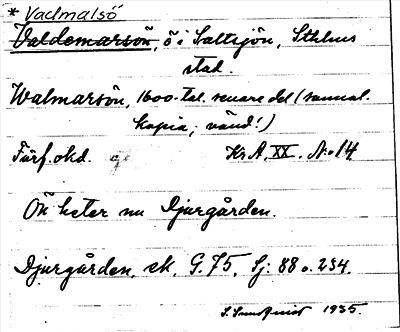 * Vadmalsö
Valdemarsön, ö i Saltsjön, Sthlms
stad.
Walmarsön, 1600-tal. senare del (samml.
kopia; vänd!)
Förf. okd. Kr.A. XX. No 14
Ön heter nu Djurgården.
Djurgården, ek. G. 75, Sj: 88 o. 234.
S. Sundquist 1935.